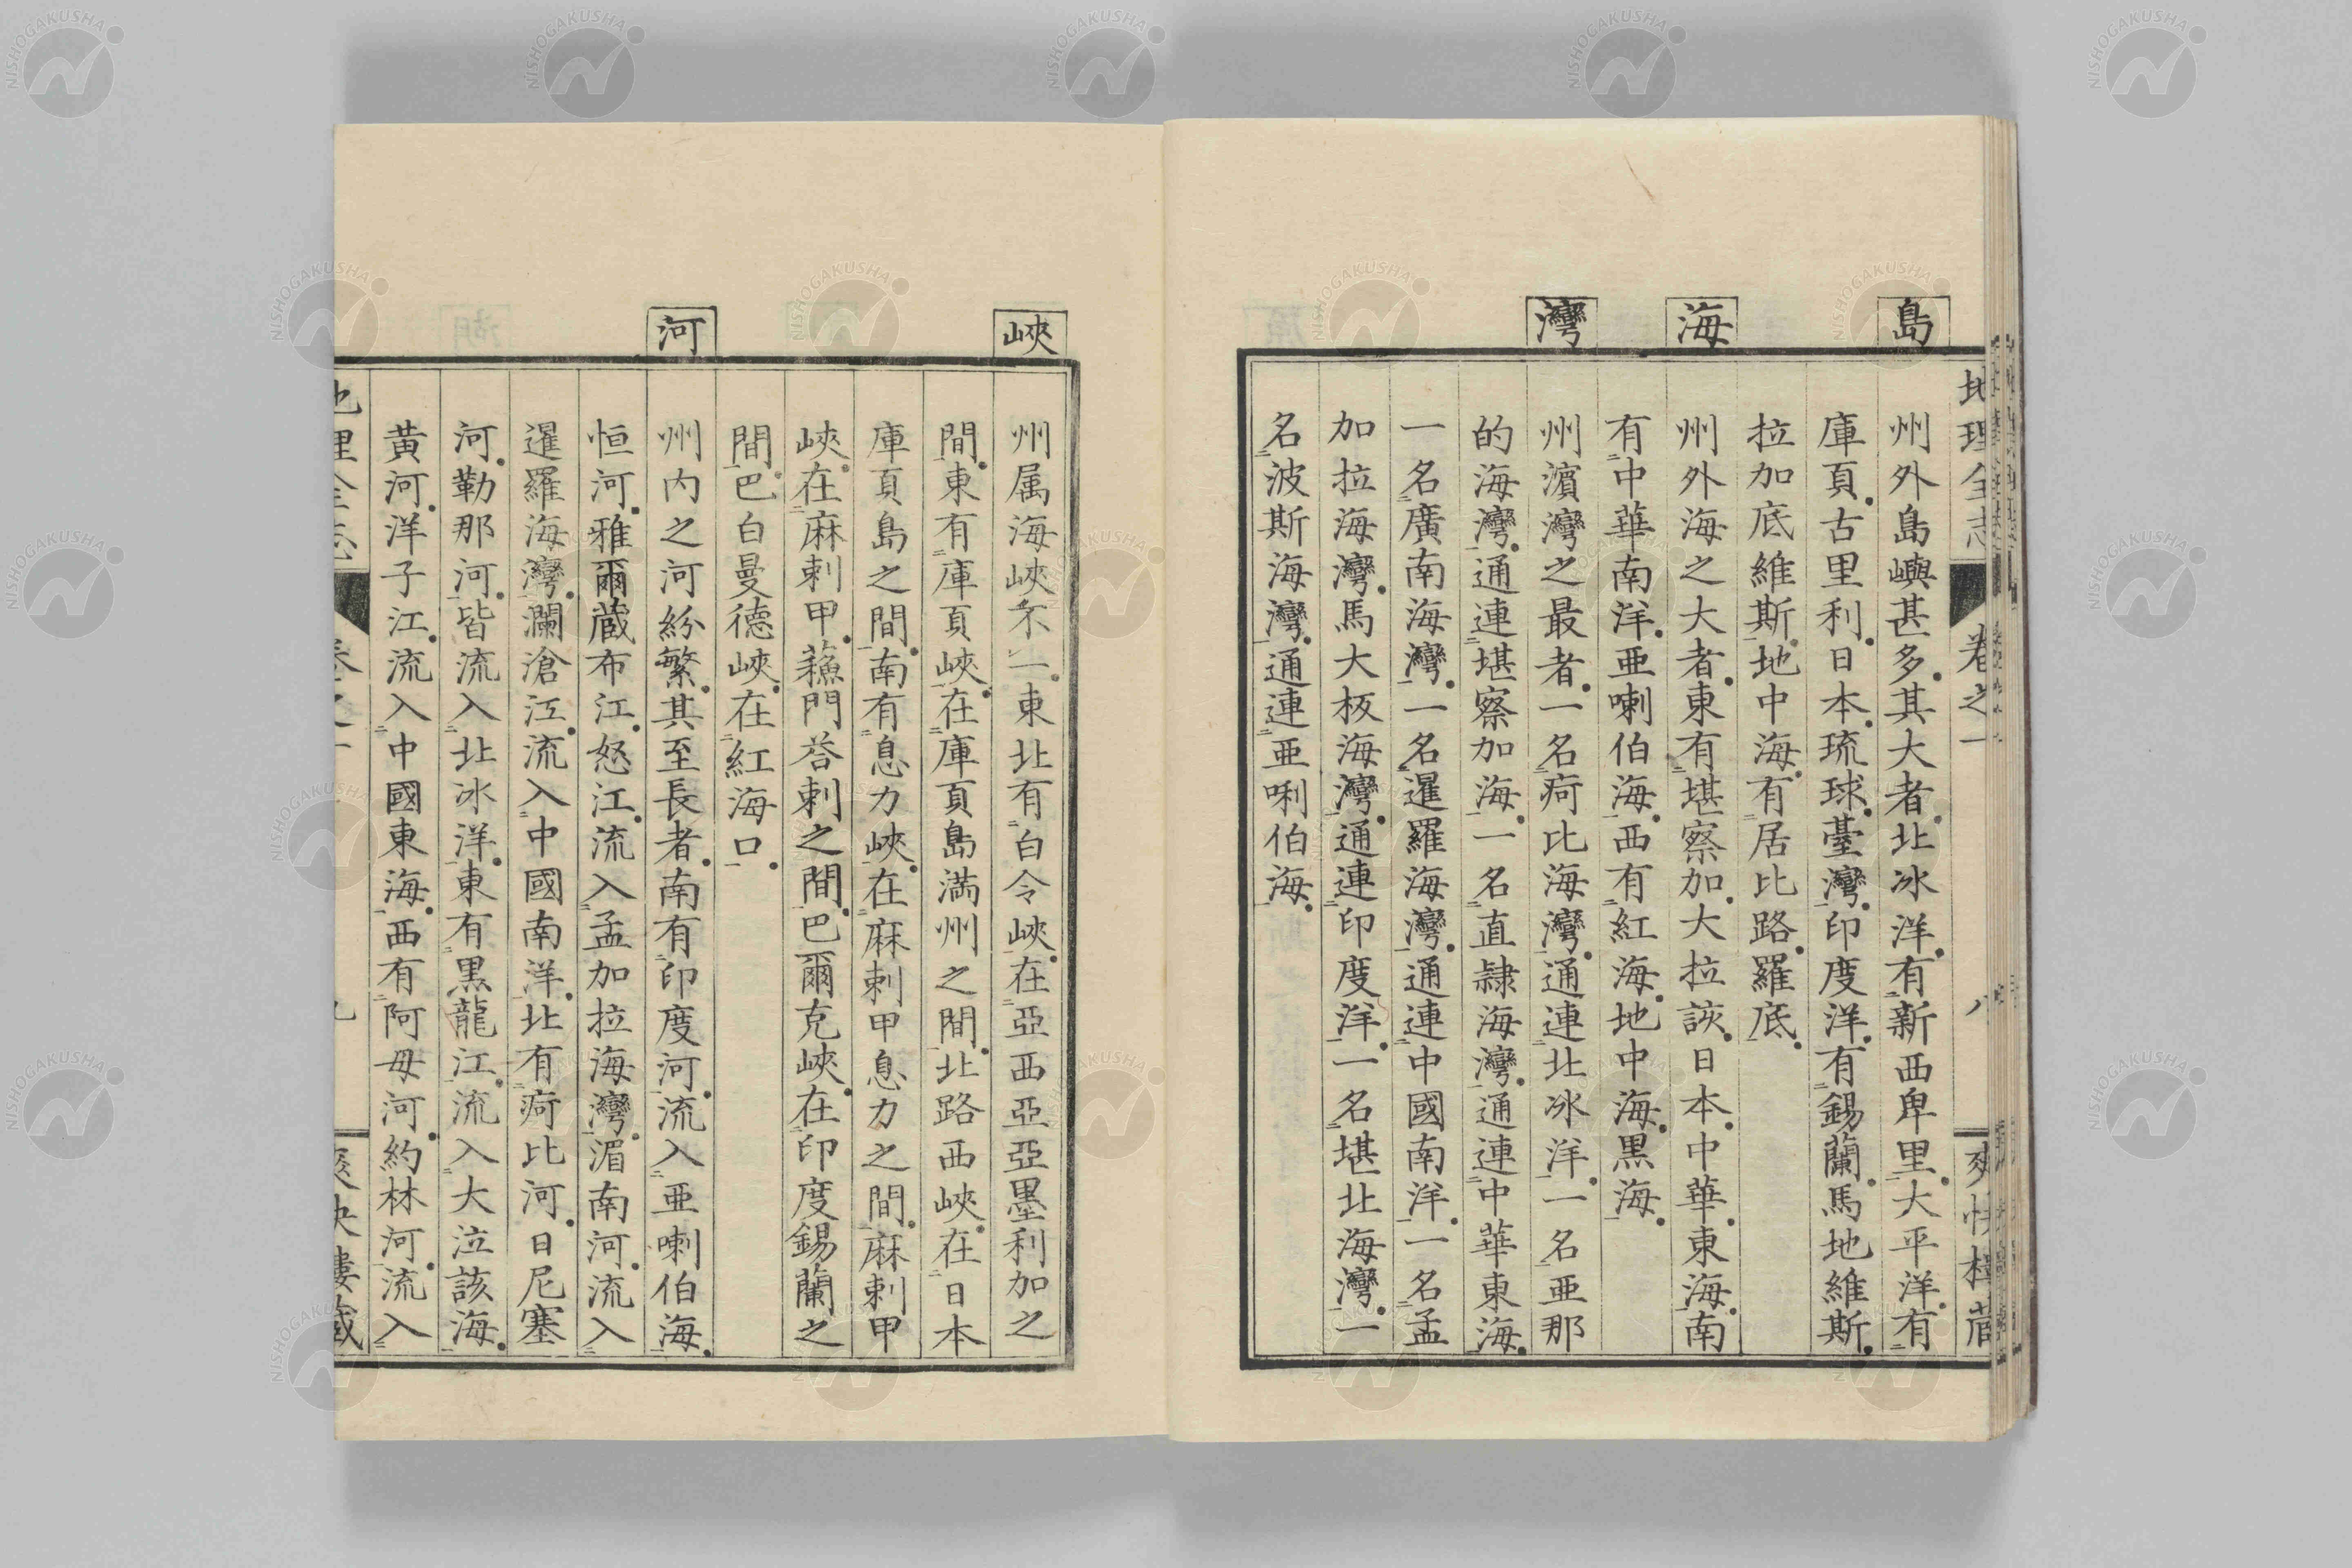 地理全志
卷之一
八
島
州外島嶼甚多其大者北冰洋有新西卑里大平洋有
庫頁古里利日本琉球臺灣印度洋有錫蘭馬地維斯
拉加底維斯地中海有居比路羅底
海
州外海之大者東有堪察加大拉該日本中華東海南
有中華南洋亞喇伯海西有紅海地中海黒海
灣
州濱灣之最者一名疴比海灣通連北冰洋一名亜那
的海灣通連堪察加海一名直隷海灣通連中華東海
一名廣南海灣一名暹羅海灣通連中國南洋一名孟
加拉海灣馬大板海灣通連印度洋一名堪北海灣一
名波斯海灣通連亜唎伯海
峽
州属海峽不一東北有白令峽在亞西亞亞墨利加之
間東有庫頁峽在庫頁島満州之間北路西峽在日本
庫頁島之間南有息力峽在麻剌甲息力之間麻剌甲
峽在麻剌甲蘓門荅剌之間巴爾克峽在印度錫蘭之
間巴白曼德峽在紅海口
河
州内之河紛繁其至長者南有印度河流入亜喇伯海
恒河雅爾蔵布江怒江流入孟加拉海灣湄南河流入
暹羅海灣瀾滄江流入中國南洋北有疴比河日尼塞
河勒那河皆流入北冰洋東有黒龍江流入大泣該海
黄河洋子江流入中國東海西有阿母河約林河流入
NISHOGAKUSHA